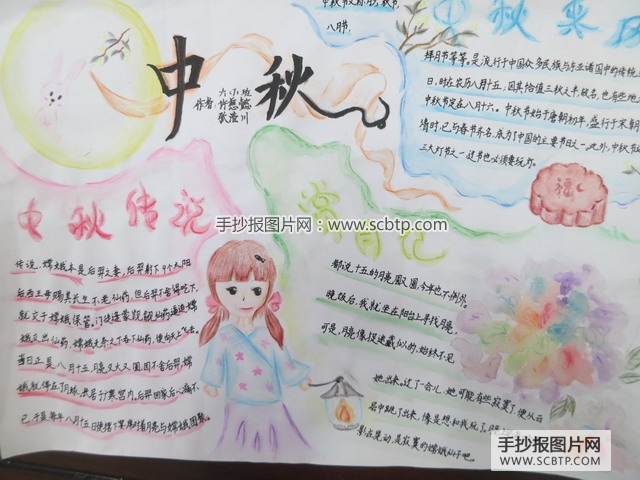 中秋节又称月夕、秋节、
八月节、
中秋来历
拜月节等等,是流行于中国众多民族与东亚诸国中的传统
日,时在农历八月十五,因其恰值三秋之半故名,也有些地
中秋节定在八月十六。中秋节始于唐朝初年,盛行于宋朝
清时,已与春节齐名,成为中国的主要节日之一,此外,中秋节
三大灯节之一过节也必须要玩灯。
中秋
六(1)班
作者
张澄川
福
中秋传说
传说,嫦娥本是后羿之妻,后羿射下9个太阳
后西王母赐其长生不老仙药,但后羿不舍得吃下,
就交于嫦娥保管。门徒逢蒙觊觎仙药逼迫嫦
娥交出仙药,嫦娥无奈之下吞下仙药,便向天上飞去。
当日正是八月十五,月亮又大又圆因不舍后羿,嫦
娥就停在了月球,长居于广寒宫内。后羿回家后心痛不
已,于是每年八月十五日便摆下宴席对着月亮与嫦娥团聚。
赏月记
都说,十五的月亮圆又圆,今年也不例外。
晚饭后,我就坐在阳台上寻找月亮,
可是,月亮像捉迷藏似的,始终不见
她出来。过了一会儿,她可能有些寂寞了,便从云
层中跳了出来,像是想和我玩了
影在晃动,是寂寞的嫦娥仙子吧。
手抄报图片网:www.scbtp.com
手抄报图片网
WWW.SCBTP.COM